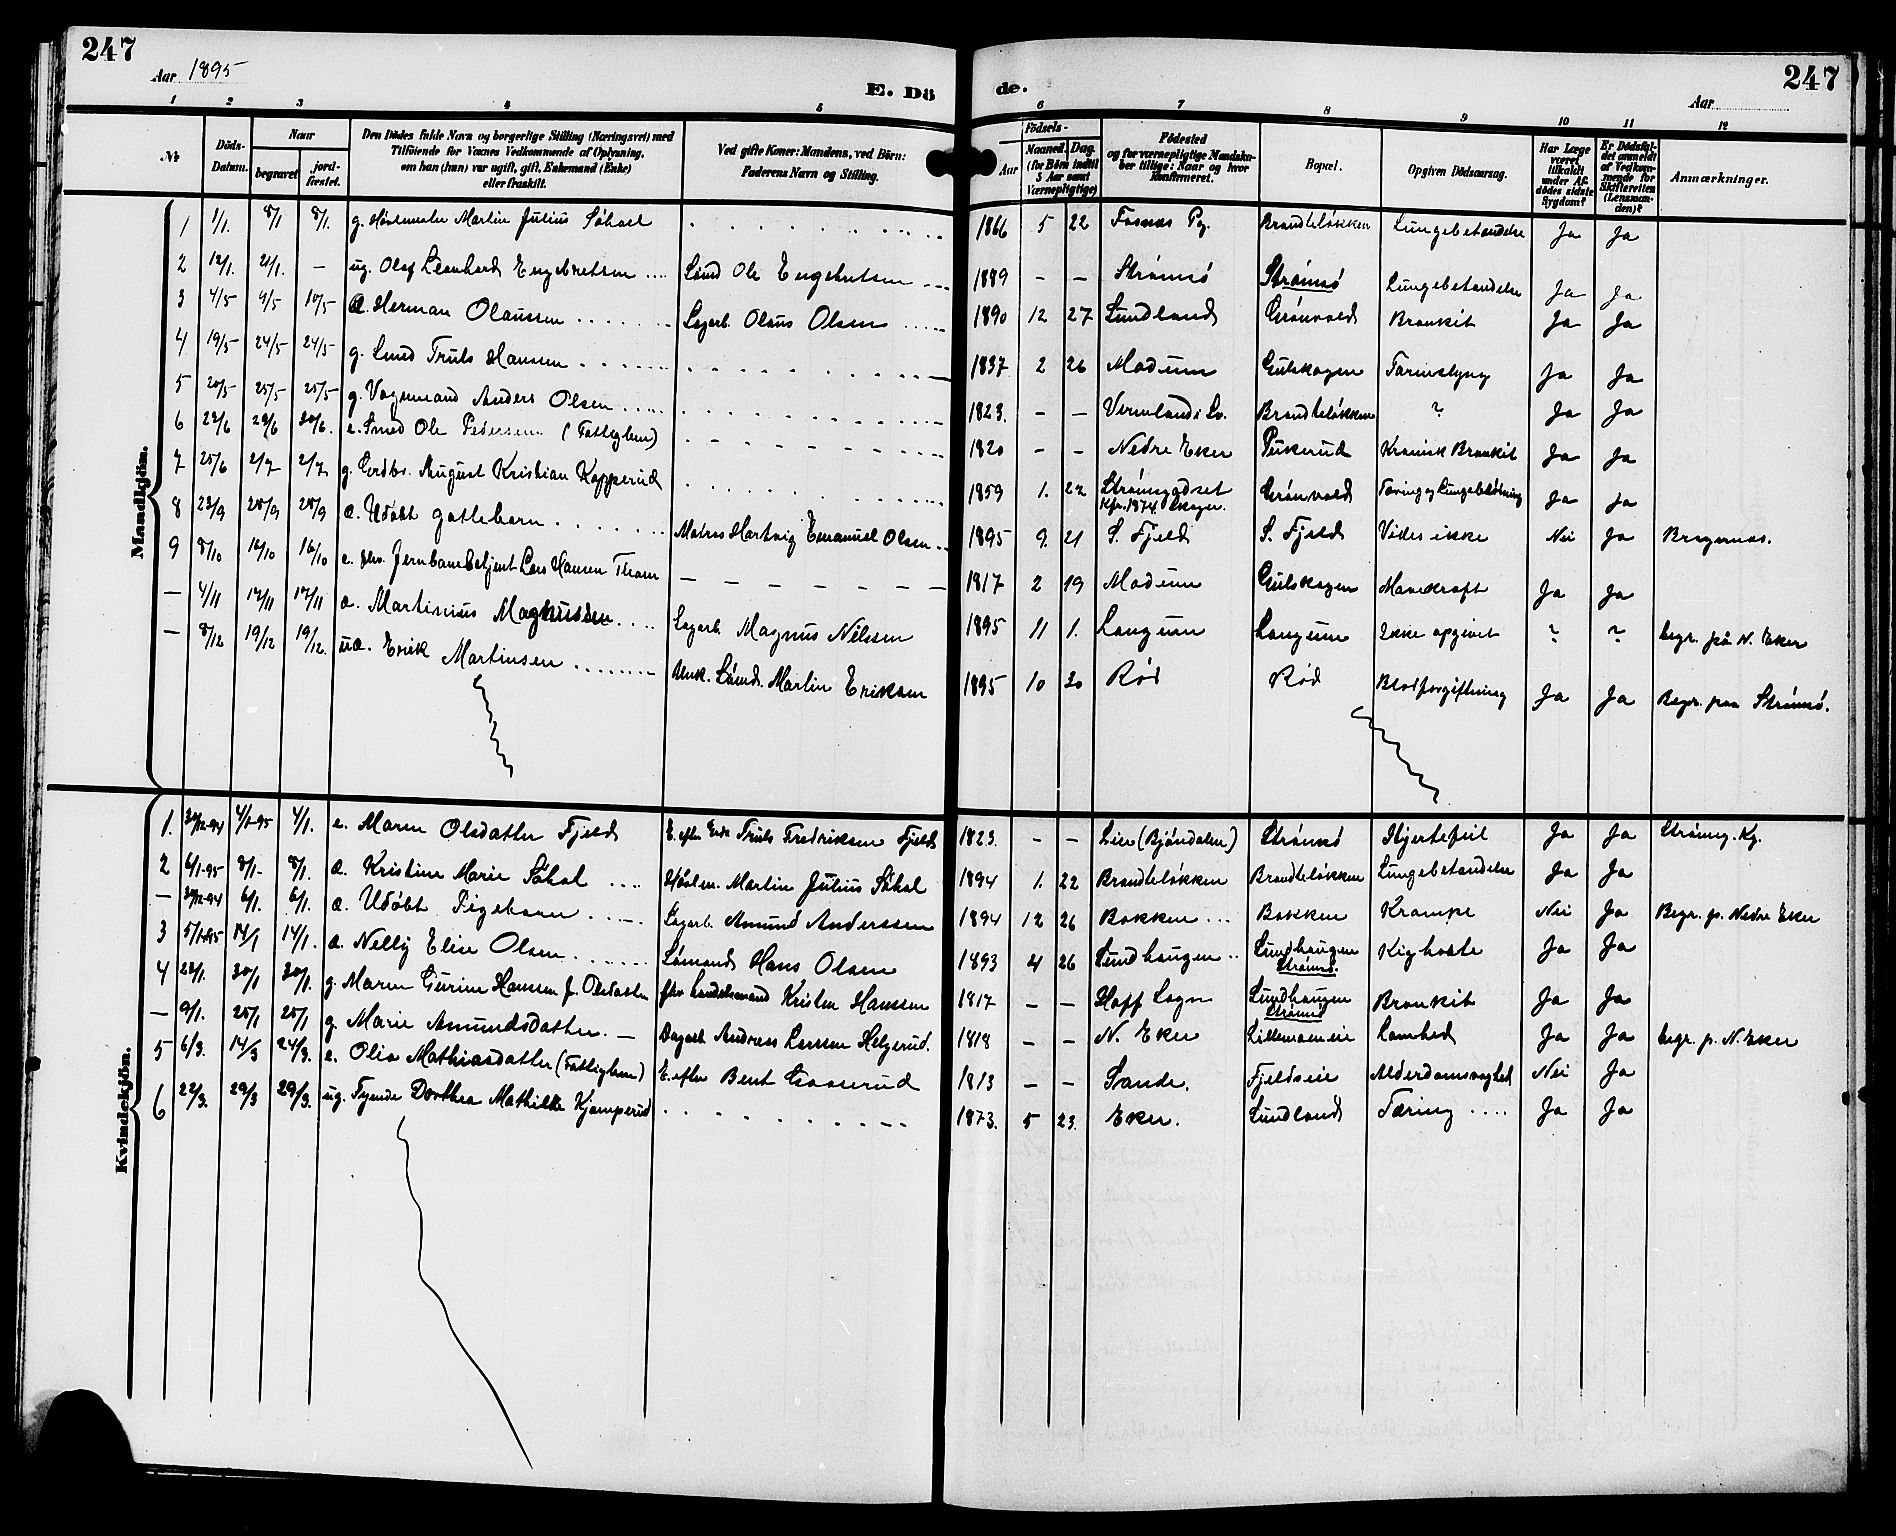 247
Aar 1895
E. Dö
de.
247
Aar
1 2 3 4 5 6 7 8 9 10 11 12
No
Döds-Datum.
Naar
begravet
jord-fæstet.
Den Dödes fulde Navn og borgerlige Stilling (Næringsvei) med Tilföiende for Voxnes Vedkommende af Oplysning, om han (hun) var ugift, gift, Enkemand (Enke) eller fraskilt.
Ved gifte Koner: Mandens, ved Börn: Faderens Navn og Stilling.
Födsels-
Aar
Maaned. Dag. (for Börn indtil 5 Aar samt Værnepligtige)
Födested og for værnepligtige Mandskaber tillige: Naar og hvor Konfirmeret.
Bopæl.
Opgiven Dödsaarsag.
Har Læge været tilkaldt under Afdödes sidste Sygdom?
Er Dödsfaldet anmeldt af Vedkommende for Skifteretten (Lensmanden)?
Anmærkninger.
Mandkjön.
1 1/1. 8/1 8/1. g. Martin Julius Søhol 1866 5 22 Fosnes Pg. Brandteløkken Lungebetændelse Ja Ja
2 12/1. 21/1. — ug. Olaf Leonhard Engebretsen Smed Ole Engebretsen 1889 — — Strømsø Strømsø Lungebetændelse Ja Ja
3 4/5 9/5 10/5 æ. Herman Olaussen Sagarb. Olaus Olsen 1890 12 27 Sundland Grønvold Bronkit Ja Ja
4 19/5 24/5 24/5 g. Smed Truls Hansen 1837 2 26 Modum Gulskogen Ja Ja
5 20/5 25/5 25/5 g. Vognmand Anders Olsen 1823. — — Vermland i Sv. Brandteløkken ? Ja Ja
6 23/6 29/6 30/6. e. Smed Ole Pedersen (Fattiglem) 1820 — — Nedre Eker Pukerud Kronisk Bronkit Ja Ja
7 25/6 2/7 2/7 g. August Kristian Kopperud 1859 1. 22 Strømsgodset Kfr. 1874 Skoger. Grønvold Tæring og Ja Ja
8 23/9 28/9 28/9 æ. Udøbt guttebarn Matros Hartvig Emanuel Olsen 1895 9. 21 S. Fjeld S. Fjeld Vides ikke Nei Ja Bragernes.
9 8/10 16/10 16/10 e. Jernbanebetjent Lars Hansen Thom 1817 2 19 Modum Gulskogen Mavekræft Ja Ja
— 4/11 17/11 17/11 æ. Martinius Magnussen Sagarb. Magnus Nilsen 1895 11 1. Langum Langum Ikke opgivet ? ? begr. på N. Eker
— 8/12 19/12 19/12. uæ. Erik Martinsen Unk. Sømd. Martin Eriksen 1895 10 20 Rød Rød Blodforgiftning Ja Ja Begr. paa Strømsø.
Kvindekjön.
1. 30/12-94 4/1-95 4/1. e. Maren Olsdatter Fjeld E. efter Truls Fredriksen Fjeld 1823. — — Lier (Bjøndalen) Strømsø Hjertefeil Ja Ja Strømsg. Kg.
2 6/1-95 8/1- 8/1. æ. Kristine Marie Søhol Martin Julius Søhol 1894 1. 22 Brandteløkken Brandteløkken Lungebetændelse Ja Ja
— 30/12-94 6/1. 6/1. æ. Udøbt Pigebarn Sagarb. Amund Andersen 1894 12 26 Bakken Bakken Krampe Nei Ja Begr. p. Nedre Eker
3 5/1-95 14/1 14/1. æ. Nelly Elise Olsen Sømand Hans Olsen 1893 4 26 Sundhaugen Sundhaugen Strømsø. Kighoste Ja Ja
4 23/1. 30/1 30/1. g. Maren Gurine Hanssen f. Olsdatter fhv Landelsmand Kristen Hanssen 1817 — — Hoff Sogn Sundhaugen Strømsø Bronkit Ja Ja
— 9/1. 25/1 25/1. g. Marie Amundsdatter. — Dagarb Andreas Larssen Helgerud. 1818 — — N. Eker Lillemoeneie Lamhed Ja Ja begr. p. N. Eker
5 6/3. 14/3 24/3. e. Olia Mathiasdatter (Fattiglem) E. efter Bent Goserud 1813 — — Sande. Fjeldseie Alderdomssvaghed Nei Ja
6 22/3. 29/3 29/3. ug. Tyende Dorthea Mathilde Kjemperud 1873. 5 23. Eker. Sundland Tæring Ja Ja